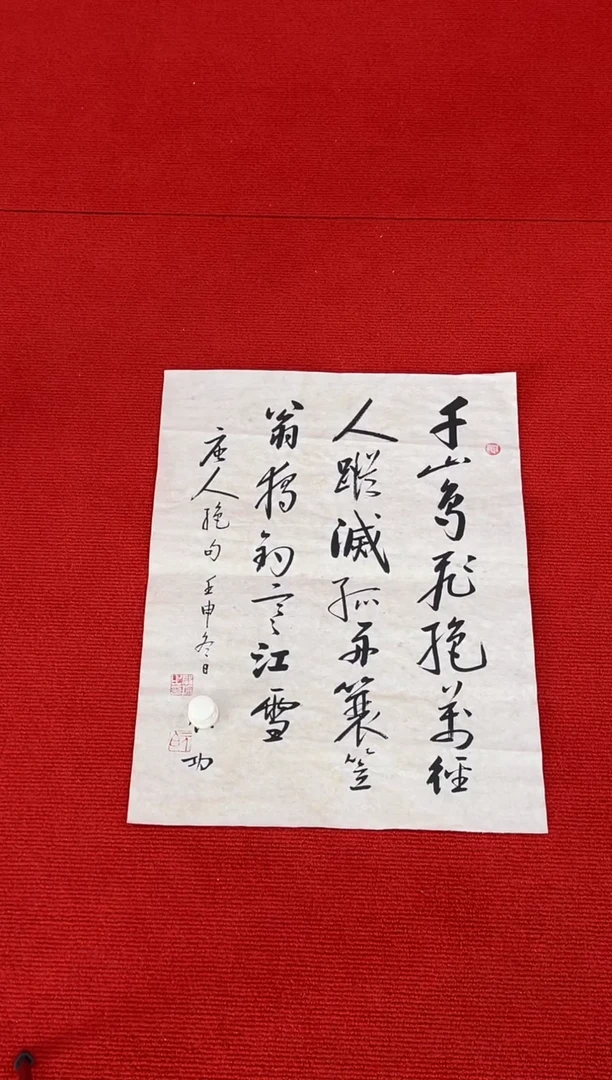 千山鳥飛絶萬徑
人蹤滅孤舟簑笠
翁獨釣寒江雪
唐人絶句 壬申冬日
功